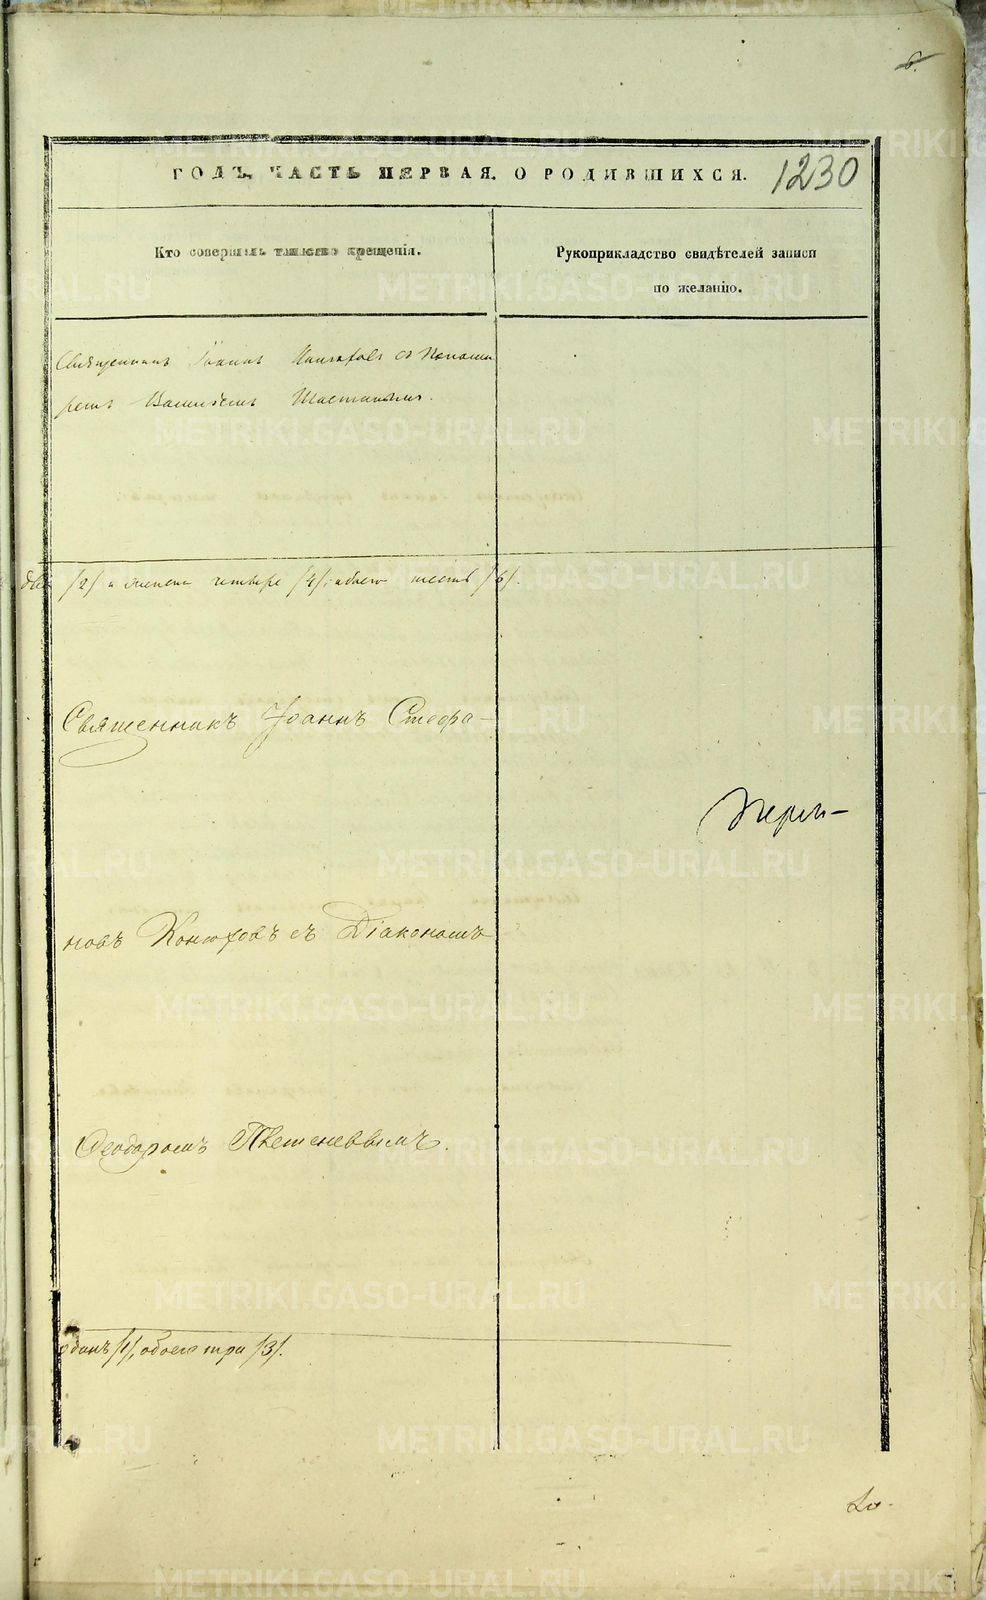 6.
ГОДЪ, ЧАСТЬ ПЕРВАЯ. О РОДИВШИХСЯ.
1230
Кто совершалъ таинство крещенія.
Рукоприкладство свидѣтелей записи
по желанію.
Священникъ Іоаннъ съ Понома
ремъ Василіемъ
два /2/ и женска четыре /4/, обоего шесть /6/.
Священникъ Іоаннъ Стефа-
новъ Конюховъ съ Діакономъ
Феодоромъ
одинъ /1/, обоего три /3/.
METRIKI.GASO-URAL.RU